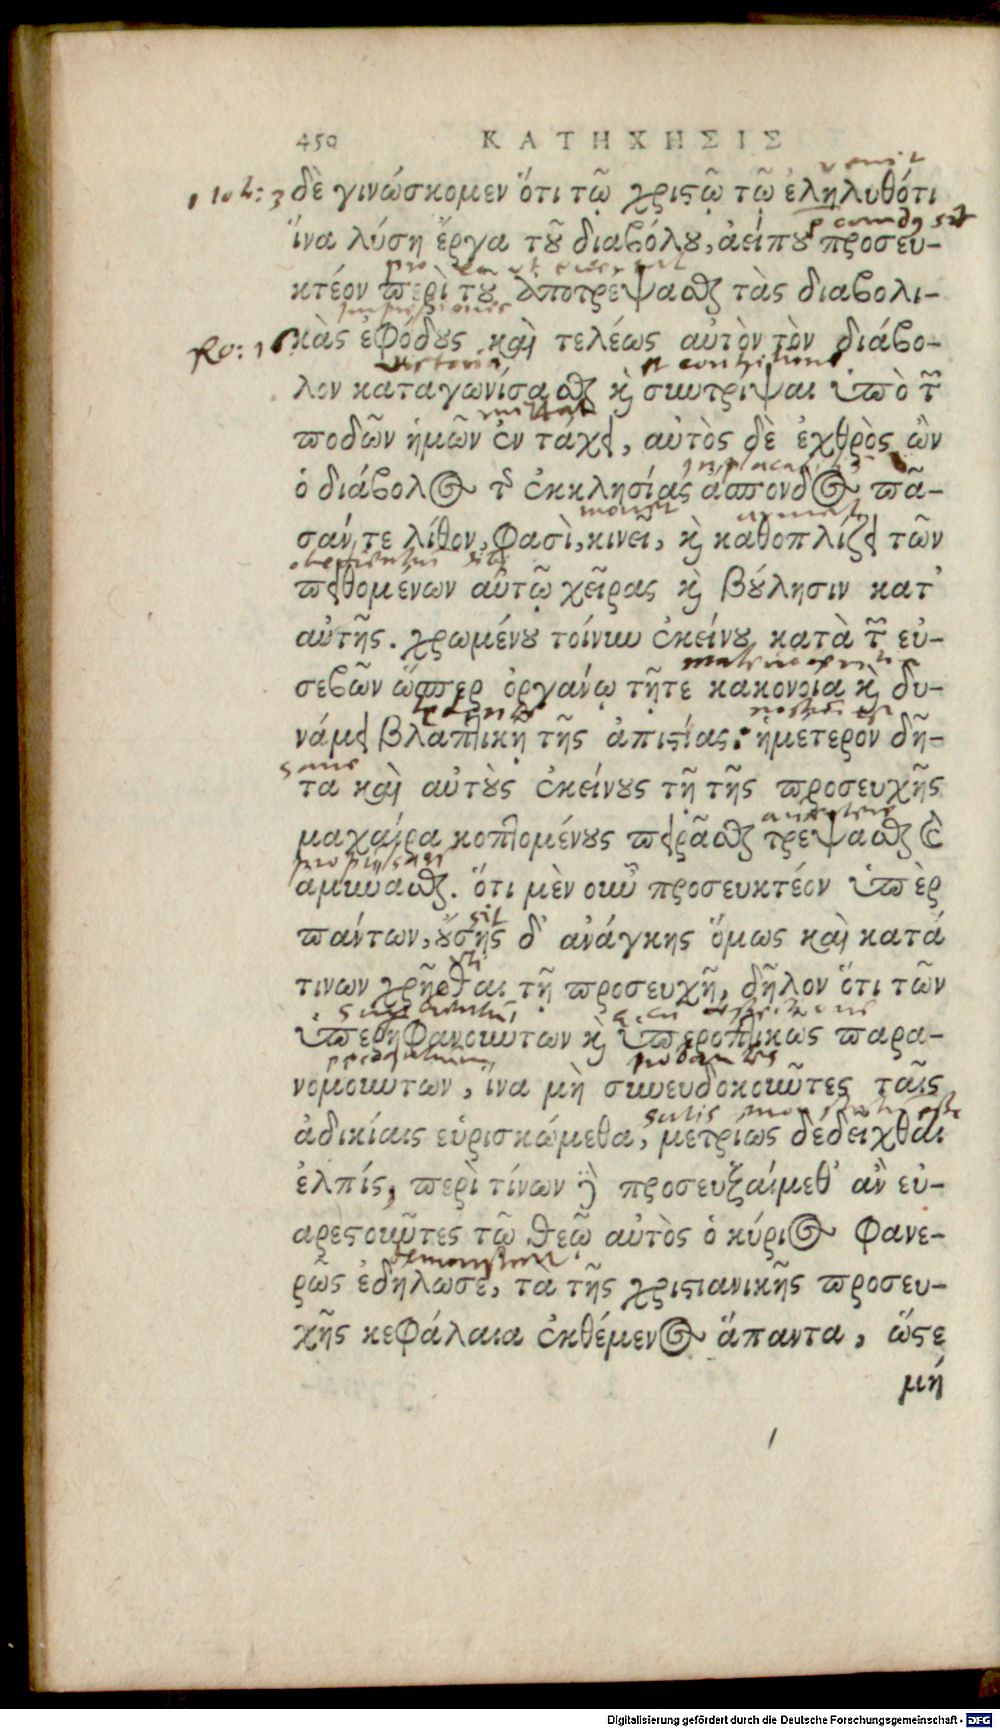 450 ΚΑΤΗΧΗΣΙΣ
δὲ γινώσκομεν ὅτι τῷ χριϛῷ τῷ ἐληλυθότι
1 Ioh: 3
ἵνα λύσῃ ἔργα τοῦ διαβόλου, ἀείπου προσευ-
κτέον περὶ τοῦ ἀποτρέψασθαι τὰς διαβολι-
κὰς ἐφόδους καὶ τελέως αὐτὸν τὸν διάβο-
Ro: 16
λον καταγωνίσασθαι καὶ συντρίψαι ὑπὸ τῶν
ποδῶν ἡμῶν ἐν τάχει, αὐτὸς δὲ ἐχθρὸς ὢν
ὁ διάβολος τῆς ἐκκλησίας ἄσπονδος πᾶ-
σάν τε λίθον, φασὶ, κινεῖ, καὶ καθοπλίζει τῶν
πειθομένων αὐτῷ χεῖρας καὶ βούλησιν κατ'
αὐτῆς. χρωμένου τοίνυν ἐκείνου κατὰ τῶν εὐ-
σεβῶν ὥσπερ ὀργάνῳ τῇτε κακονοίᾳ καὶ δυ-
νάμει βλαπτικῇ τῆς ἀπιϛίας. ἡμέτερον δῆ-
τα καὶ αὐτοὺς ἐκείνους τῇ τῆς προσευχῆς
μαχαίρᾳ κοπτομένους πειρᾶσθαι τρέψασθαι καὶ
ἀμύνασθαι. ὅτι μὲν οὖν προσευκτέον ὑπὲρ
πάντων, οὔσης δ' ἀνάγκης ὅμως καὶ κατά
τινων χρῆσθαι τῇ προσευχῇ, δῆλον ὅτι τῶν
ὑπερηφανούντων καὶ ὑπεροπτικῶς παρα-
νομούντων, ἵνα μὴ συνευδοκοῦντες ταῖς
ἀδικίαις εὑρισκώμεθα, μετρίως δεδεῖχθαι
ἐλπίς, περὶ τίνων δὲ προσευξαίμεθ' ἂν εὐ-
αρεϛοῦντες τῷ θεῷ αὐτὸς ὁ κύριος φανε-
ρῶς ἐδήλωσε, τὰ τῆς χριϛιανικῆς προσευ-
χῆς κεφάλαια ἐκθέμενος ἅπαντα, ὥϛε
μή
Digitalisierung gefördert durch die Deutsche Forschungsgemeinschaft - DFG